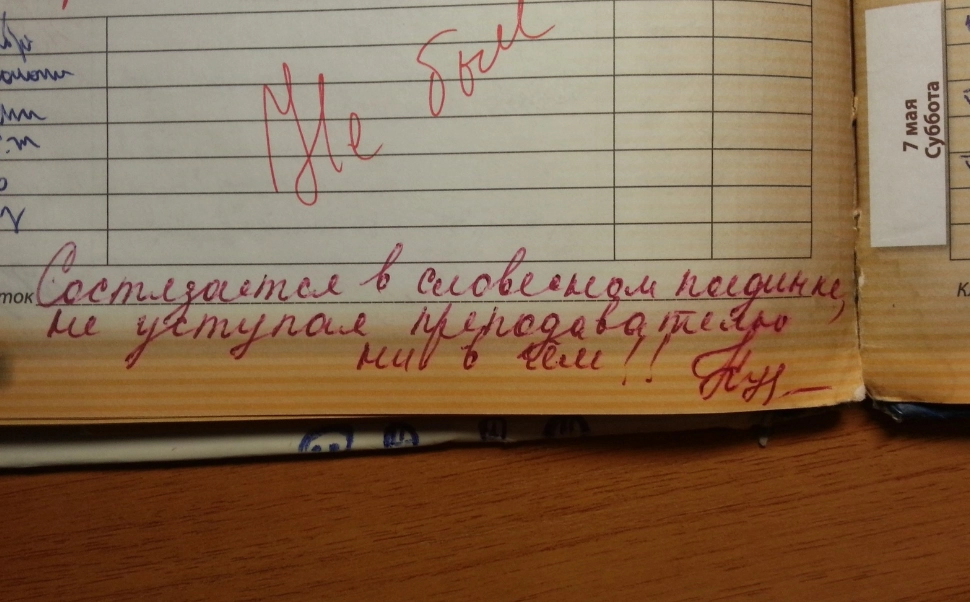 Не был
ток Состязается в словесном поединке,
не уступая преподавателю
ни в чём!!
7 мая
Суббота